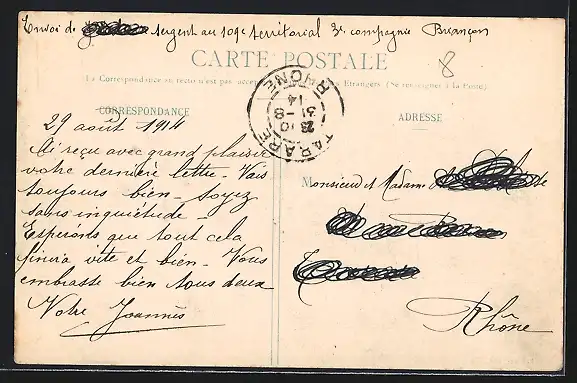 Envoi de sergent au 109e territorial 3e compagnie Briançon
CARTE POSTALE
La Correspondance au recto n'est pas acceptée Etrangers (Se renseigner à la Poste)
8
CORRESPONDANCE
ADRESSE
TARARE RHONE
31-8
14
29 août 1914
Ai reçu avec grand plaisir
votre dernière lettre - Vais
toujours bien - soyez
sans inquiétude -
Espérons que tout cela
finira vite et bien - Vous
embrasse bien tous deux
Votre Joannès
Monsieur et Madame
Rhône